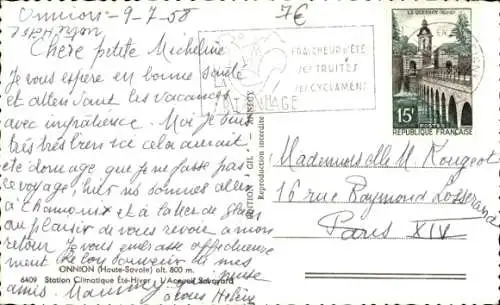 Onnion - 9-7-58
7€
Chère petite Micheline
Je vous espère en bonne santé
et allen dant les vacances
avec impatience. Moi je suis
très très bien cela aurait
été domage que je ne fasse pas
ce voyage, nous sommes allés
à Chamonix et à la
au plaisir de vous revoir a mon
retour Je vous embrasse affectueuse
ment Le bon souvenir de mes
amis Mamy
FRAICHEUR D'ÉTÉ
SES TRUITES
SES CYCLAMENS
LE QUESNOY (Nord)
15F
POSTES
REPUBLIQUE FRANÇAISE
EDITION GIL
Reproduction interdite
Mademoiselle M Rougeot
16 rue Raymond Losserand
Paris XIV
ONNION (Haute-Savoie) alt. 800 m.
6409 Station Climatique Été-Hiver - L'Accueil Savoyard